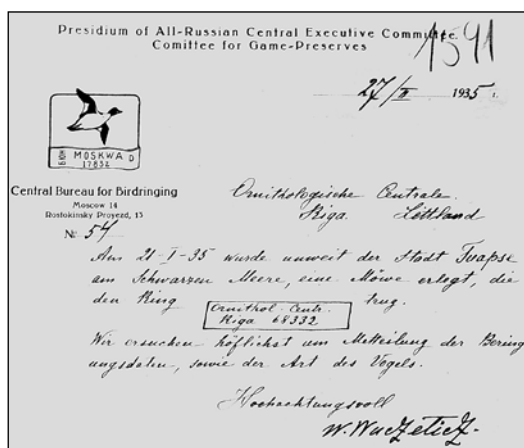 Presidium of All-Russian Central Executive Committe.
Comittee for Game-Preserves
1591
27/II 1935 г.
MOSKWA D
17832
Central Bureau for Birdringing
Moscow 14
Rostokinsky Proyezd, 13
№ 54
Ornithologische Centrale.
Riga. Lettland
Am 21-I-35 wurde unweit der Stadt Tuapse
am Schwarzen Meere, eine Möwe erlegt, die
den Ring Ornithol. Centr. Riga 68332 trug.
Wir ersuchen höflichst um Mitteilung der Bering
ungsdaten, sowie der Art des Vogels.
Hochachtungsvoll